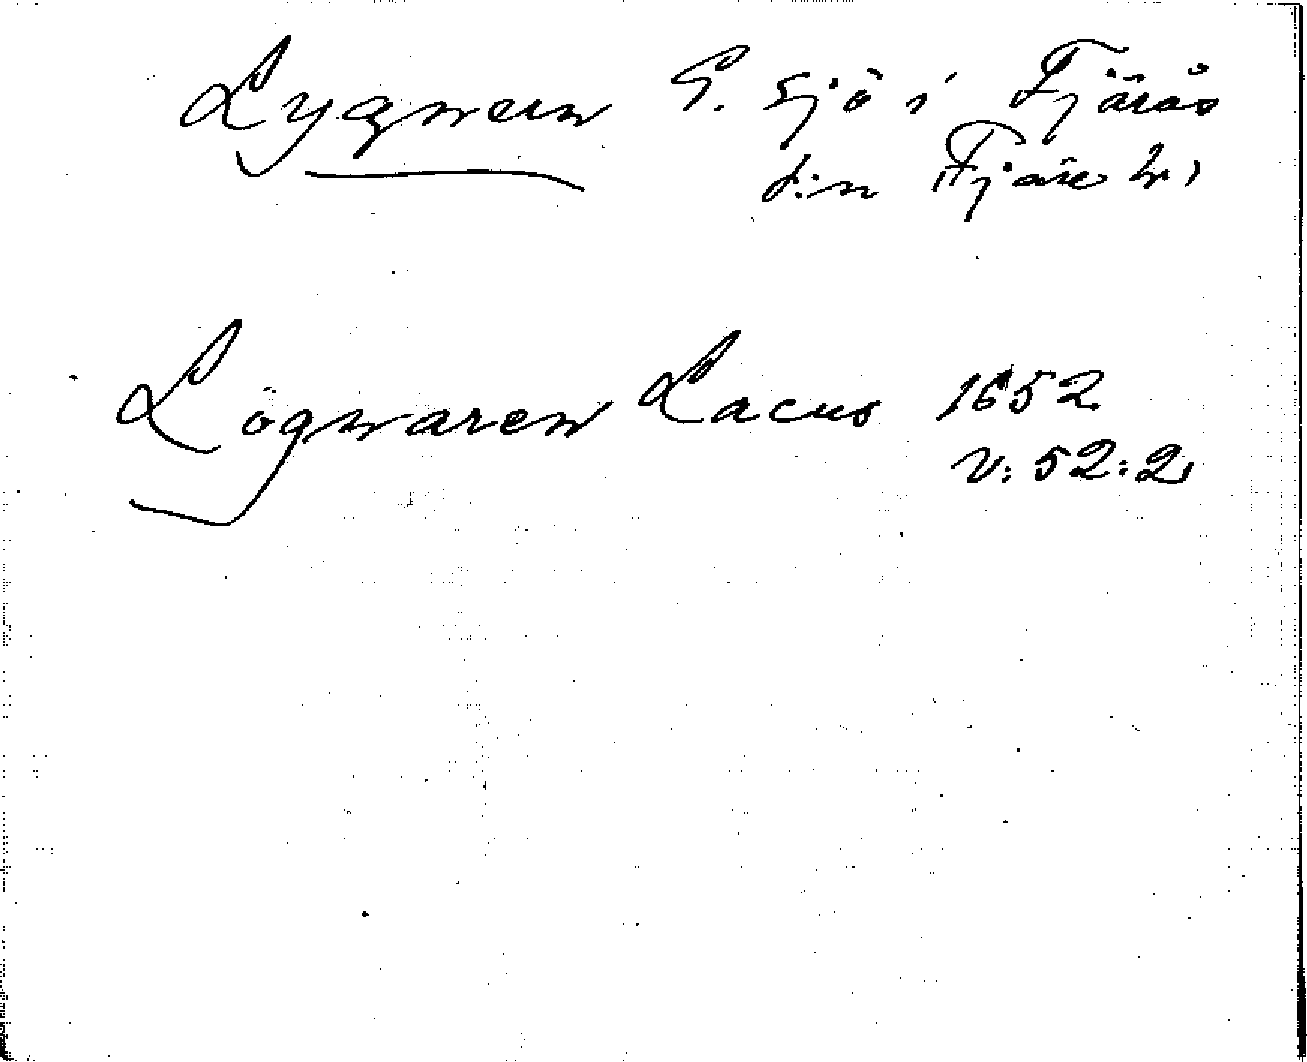 Lygnern G. Sjö i Fjärås
s:n Fjäre h.,
Lögnaren Lacus 1652
v. 52:2,